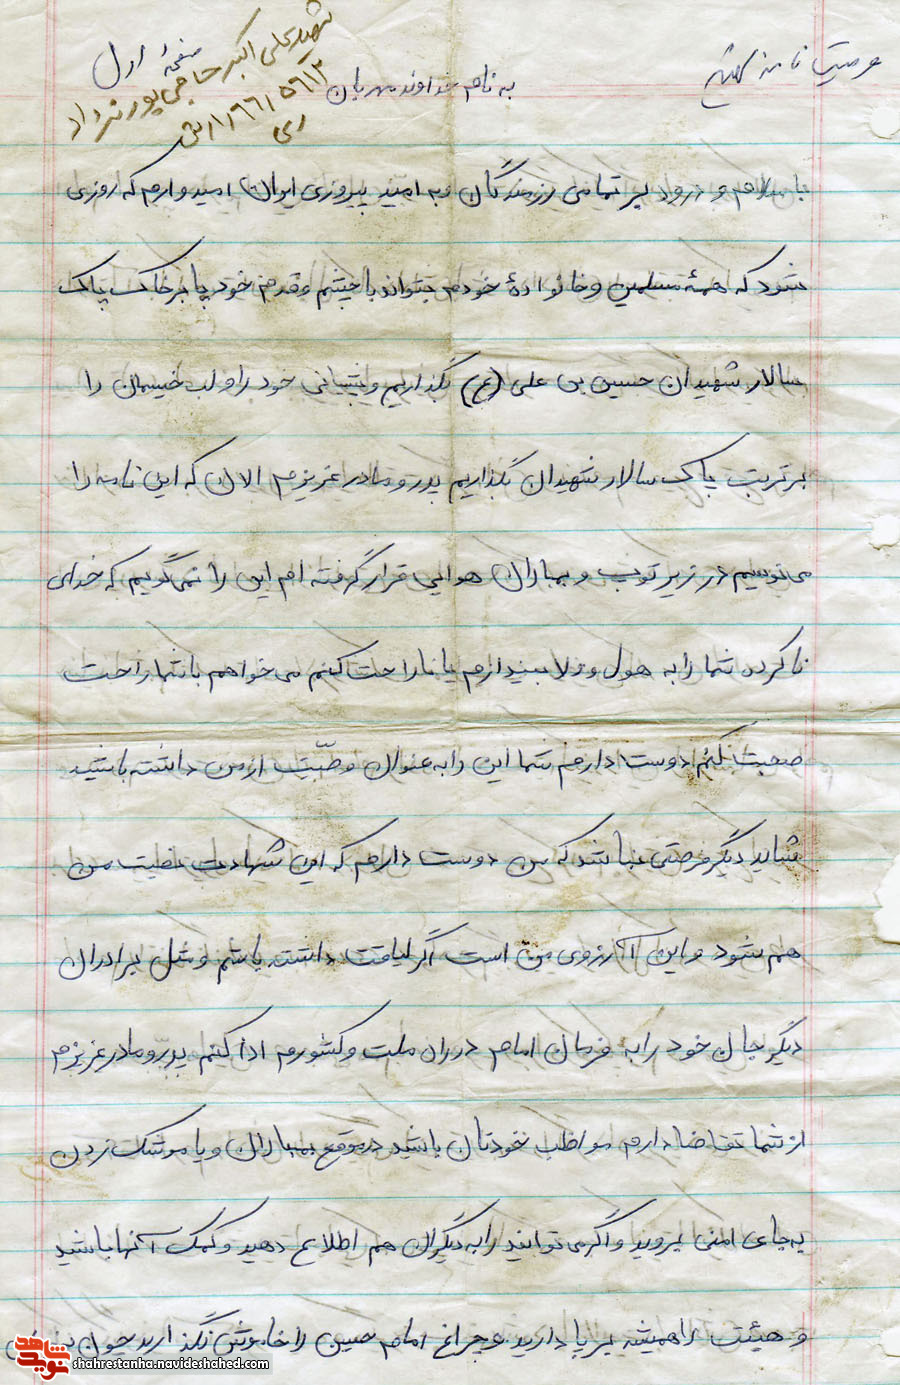 صفحهٔ اول
شهید علی اکبر حاجی پور نژاد
ری
به نام خداوند مهربان
با سلام و درود بر تمامی رزمندگان و به امید پیروزی ایران امیدوارم که روزی
شود که همهٔ مسلمین و خانوادهٔ خودم بتواند با چشم و قدم خود پا بر خاک پاک
سالار شهیدان حسین بن علی (ع) بگذاریم و پیشانی خود را و لب خیسمان را
بر تربت پاک سالار شهیدان بگذاریم پدر و مادر عزیزم الان که این نامه را
می نویسم در زیر توپ و بمباران هوایی قرار گرفته ام این را نمی گویم که خدای
نا کرده شما را به هول و ولا بیندازم یا ناراحت کنم می خواهم با شما راحت
صحبت بکنم دوست دارم شما این را به عنوان وصیّت از من داشته باشید
شاید دیگر فرصتی نباشد که من دوست دارم که این شهادت نصیب من
هم شود و این آرزوی من است اگر لیاقت داشته باشم و مثل برادران
دیگر جان خود را به فرمان امام در راه ملت و کشورم ادا کنم پدر و مادر عزیزم
از شما تقاضا دارم مواظب خودتان باشید در موقع بمباران و یا موشک زدن
به جای امنی بروید و اگر می توانید را به دیگران هم اطلاع دهید و کمک آنها باشید
و هیئت را همیشه بر پا دارید و چراغ امام حسین را خاموش نگذارید چون
شاهد
نوید
shahrestanha.navideshahed.com